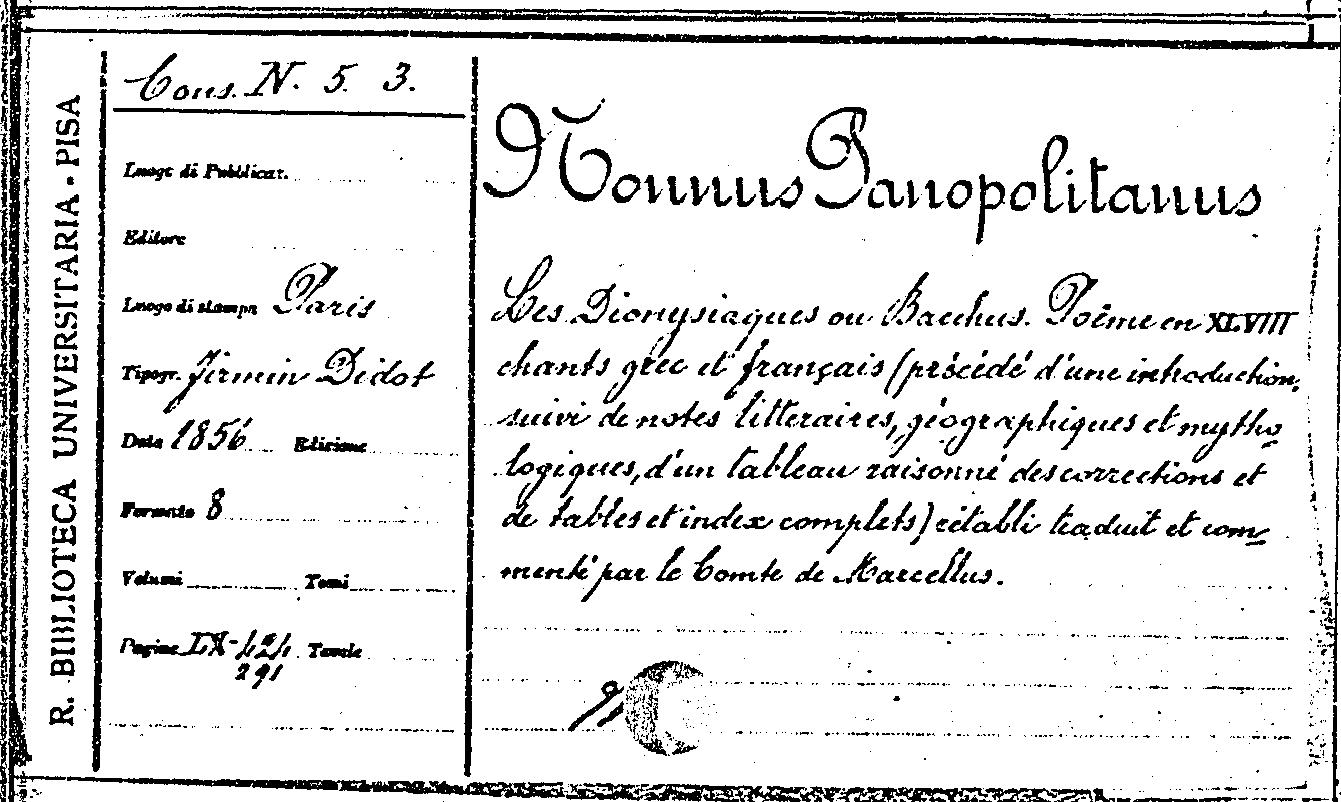 R. BIBLIOTECA UNIVERSITARIA - PISA
Cons. N. 5. 3.
Luogo di Pubblicaz.
Editore
Luogo di stampa Paris
Tipogr. Firmin Didot
Data 1856 Edizione
Formato 8
Volumi Tomi
Pagine LX-424 Tavole
291
Nonnus Panopolitanus
Les Dionysiaques ou Bacchus. Poëme en XLVIII
chants grec et français (précédé d'une introduction,
suivi de notes litteraires, géographiques et mytho
logiques, d'un tableau raisonné des corrections et
de tables et index complets) rétabli traduit et com=
menté par le Comte de Marcellus.